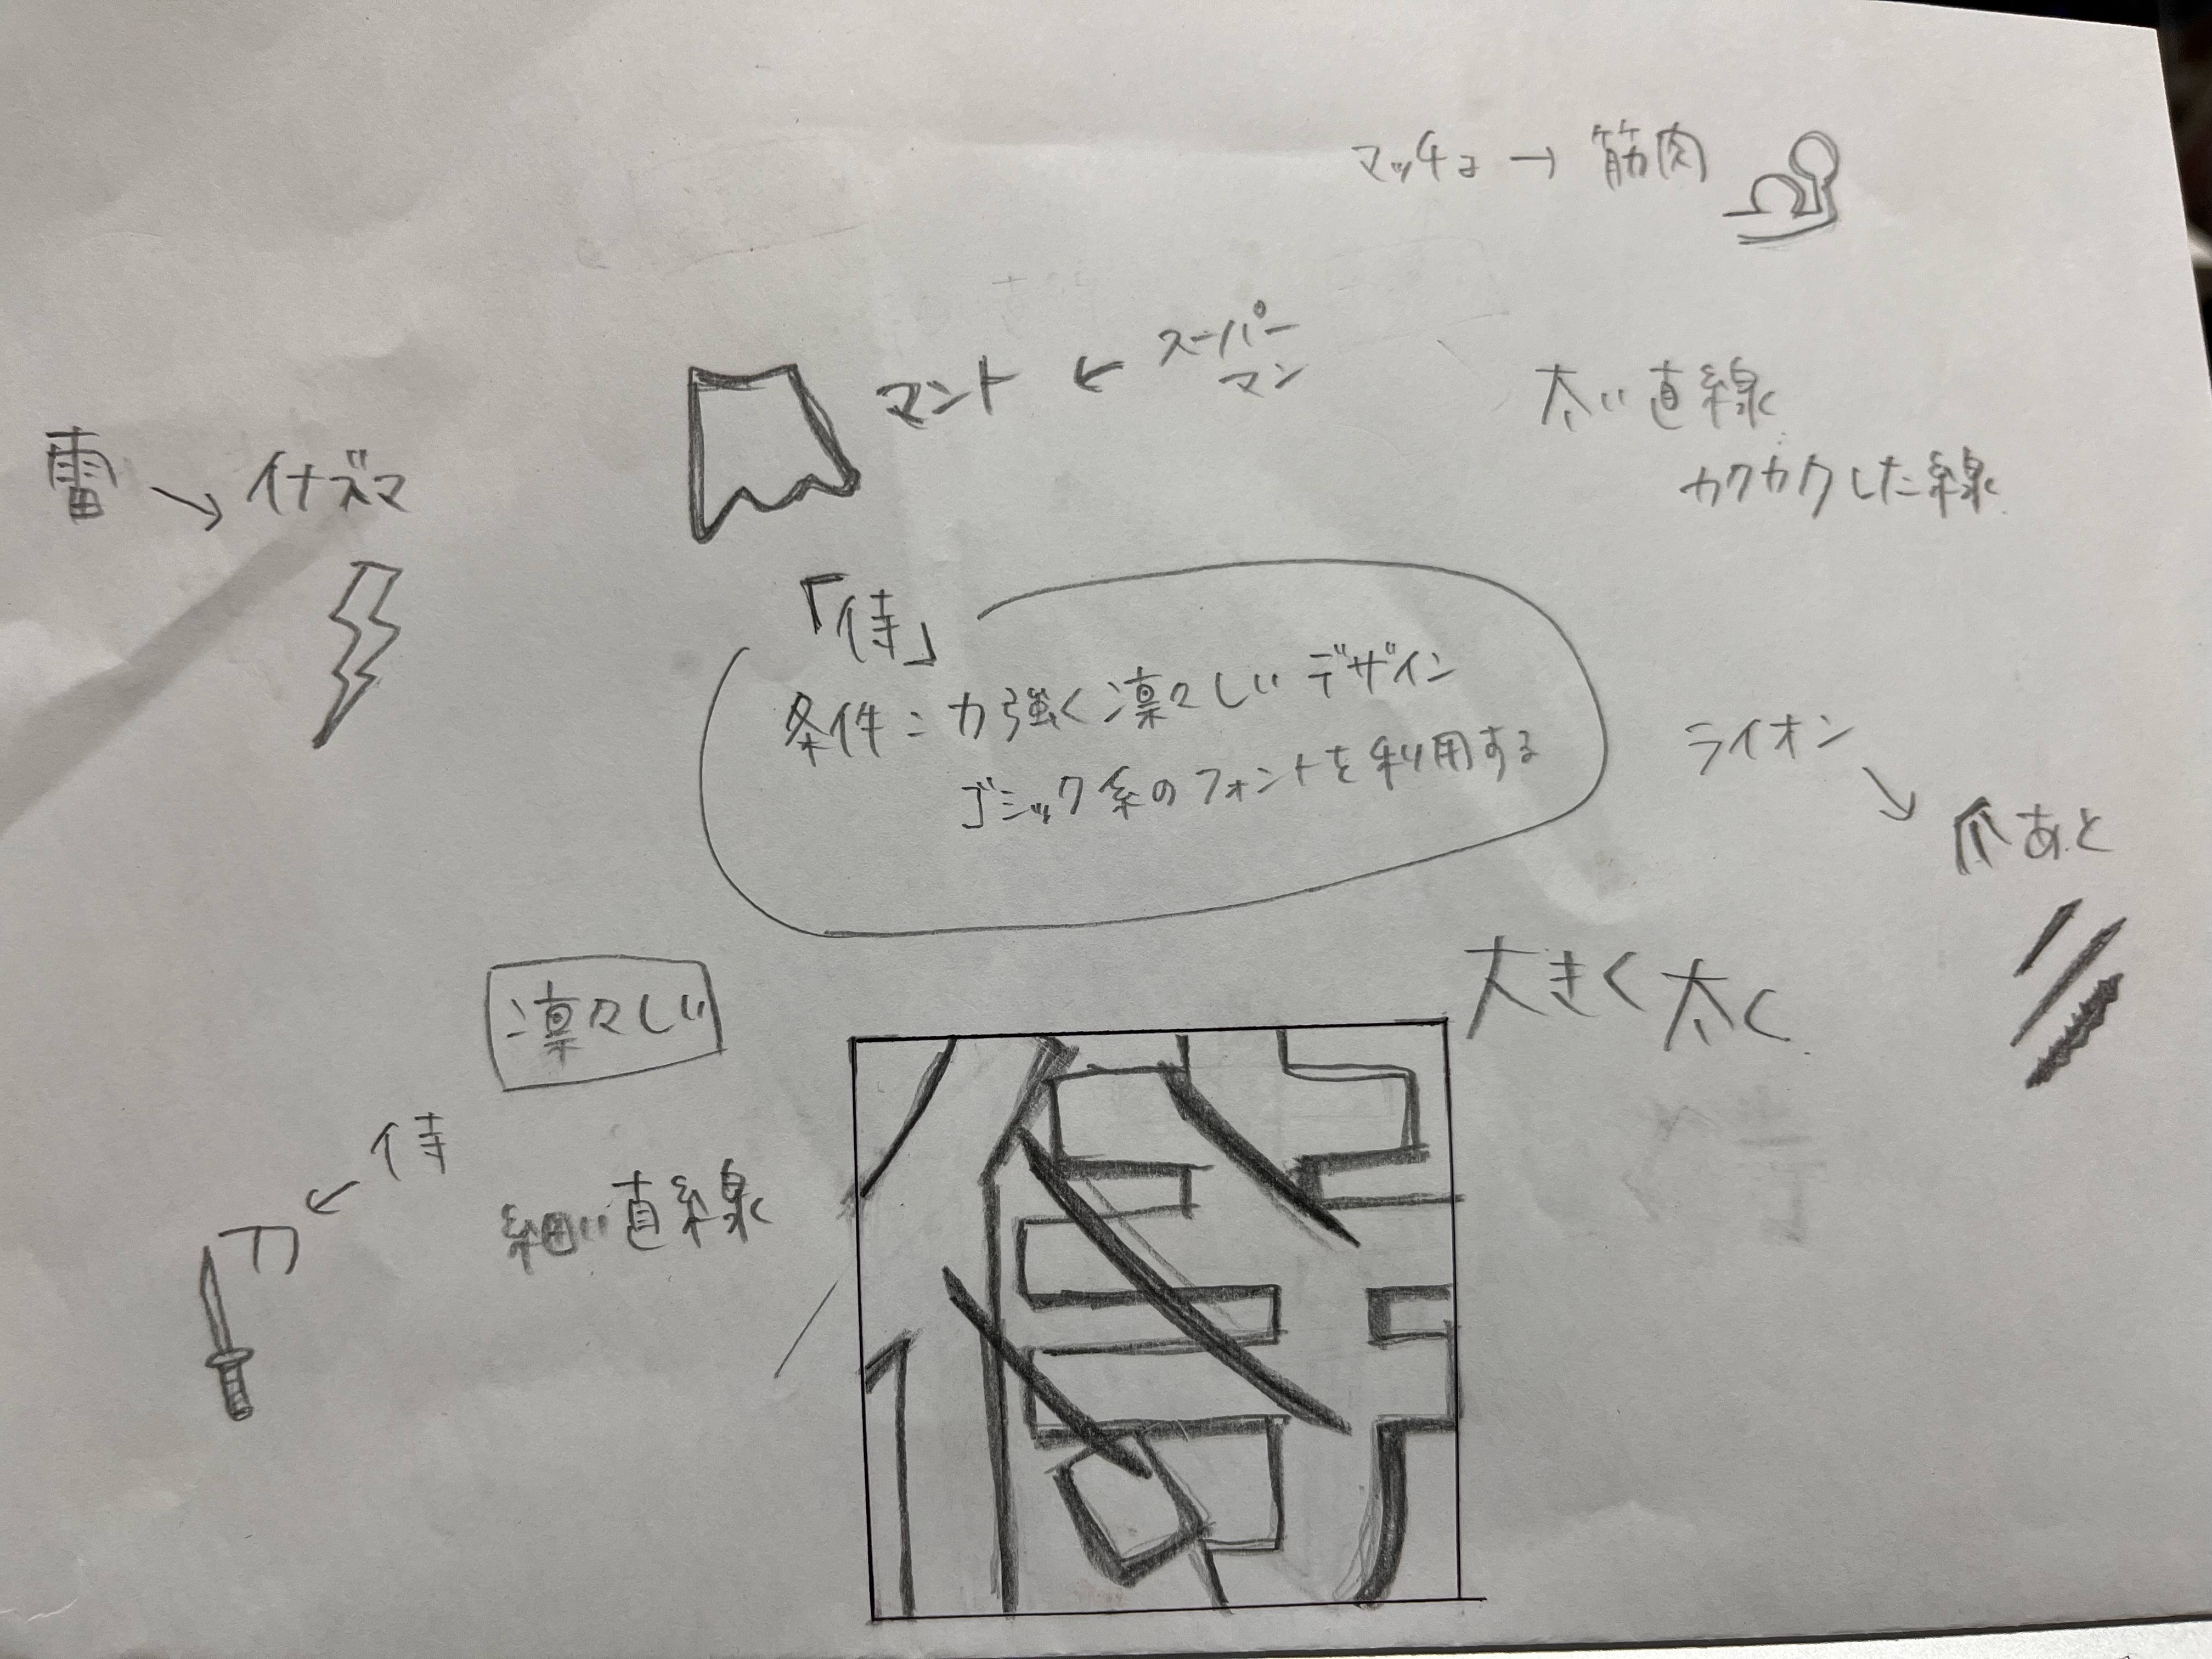 マッチョ→筋肉
マント←スーパー
マン
太い直線
カクカクした線
雷→イナズマ
「侍」
条件：力強く凛々しいデザイン
ゴシック系のフォントを利用する
ライオン
爪あと
大きく太く
凛々しい
侍
刀
細い直線
侍